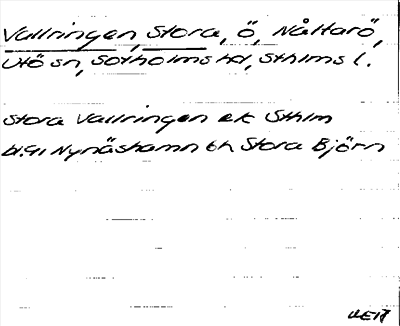 Vallringen, Stora, Ö, Nåttarö,
Utö sn, Sotholms hd, Sthlms l.
Stora Vallringen ek Sthlm
bl. 91 Nynäshamn 6h Stora Björn